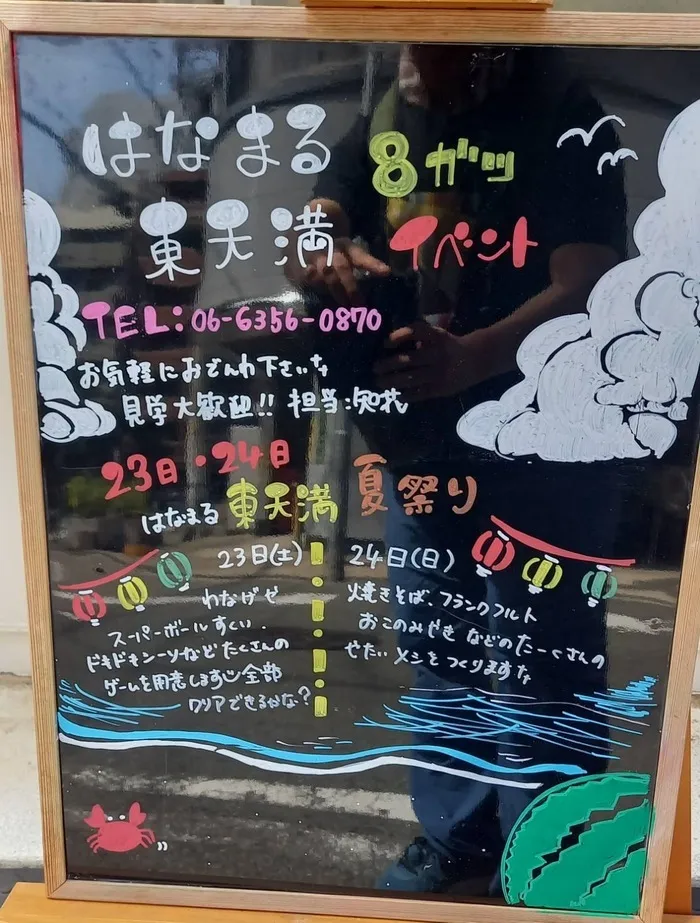 はなまる 8ガツ
東天満 イベント
TEL:06-6356-0870
お気軽におでんわ下さいな
見学大歓迎!! 担当:知花
23日・24日
はなまる 東天満 夏祭り
23日(土)
わなげぜ
スーパーボールすくい.
ドキドキンーソなど たくさんの
ゲームを用意します 全部
クリアできるかな?
24日(日)
焼きそば、フランクフルト
おこのみやき などのたーくさんの
やたい メシを つくりますな